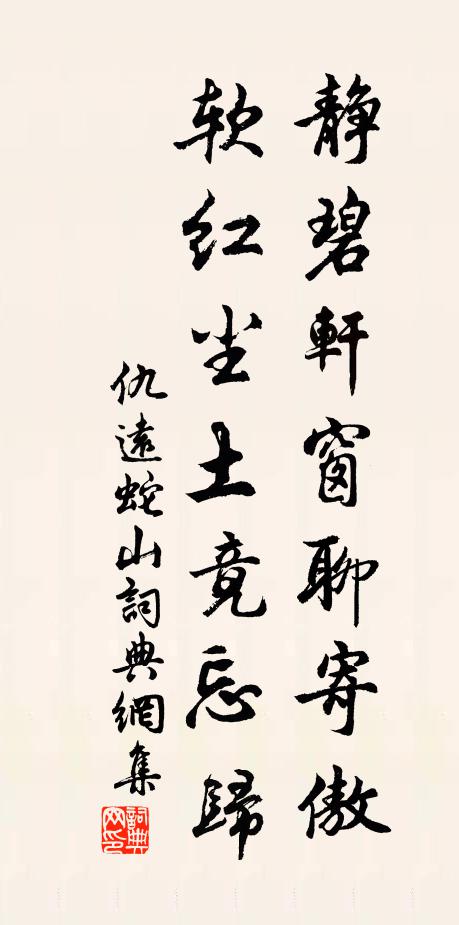 静碧軒窗聊寄傲
软红尘土竟忘歸
仇遠蛇山詞典網集
詞典網印